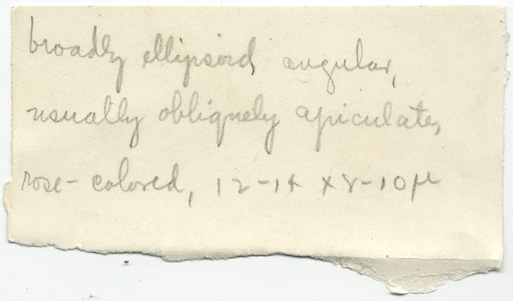 broadly ellipsoid, angular,
usually obliquely apiculate,
rose-colored, 12-14 x 8-10μ